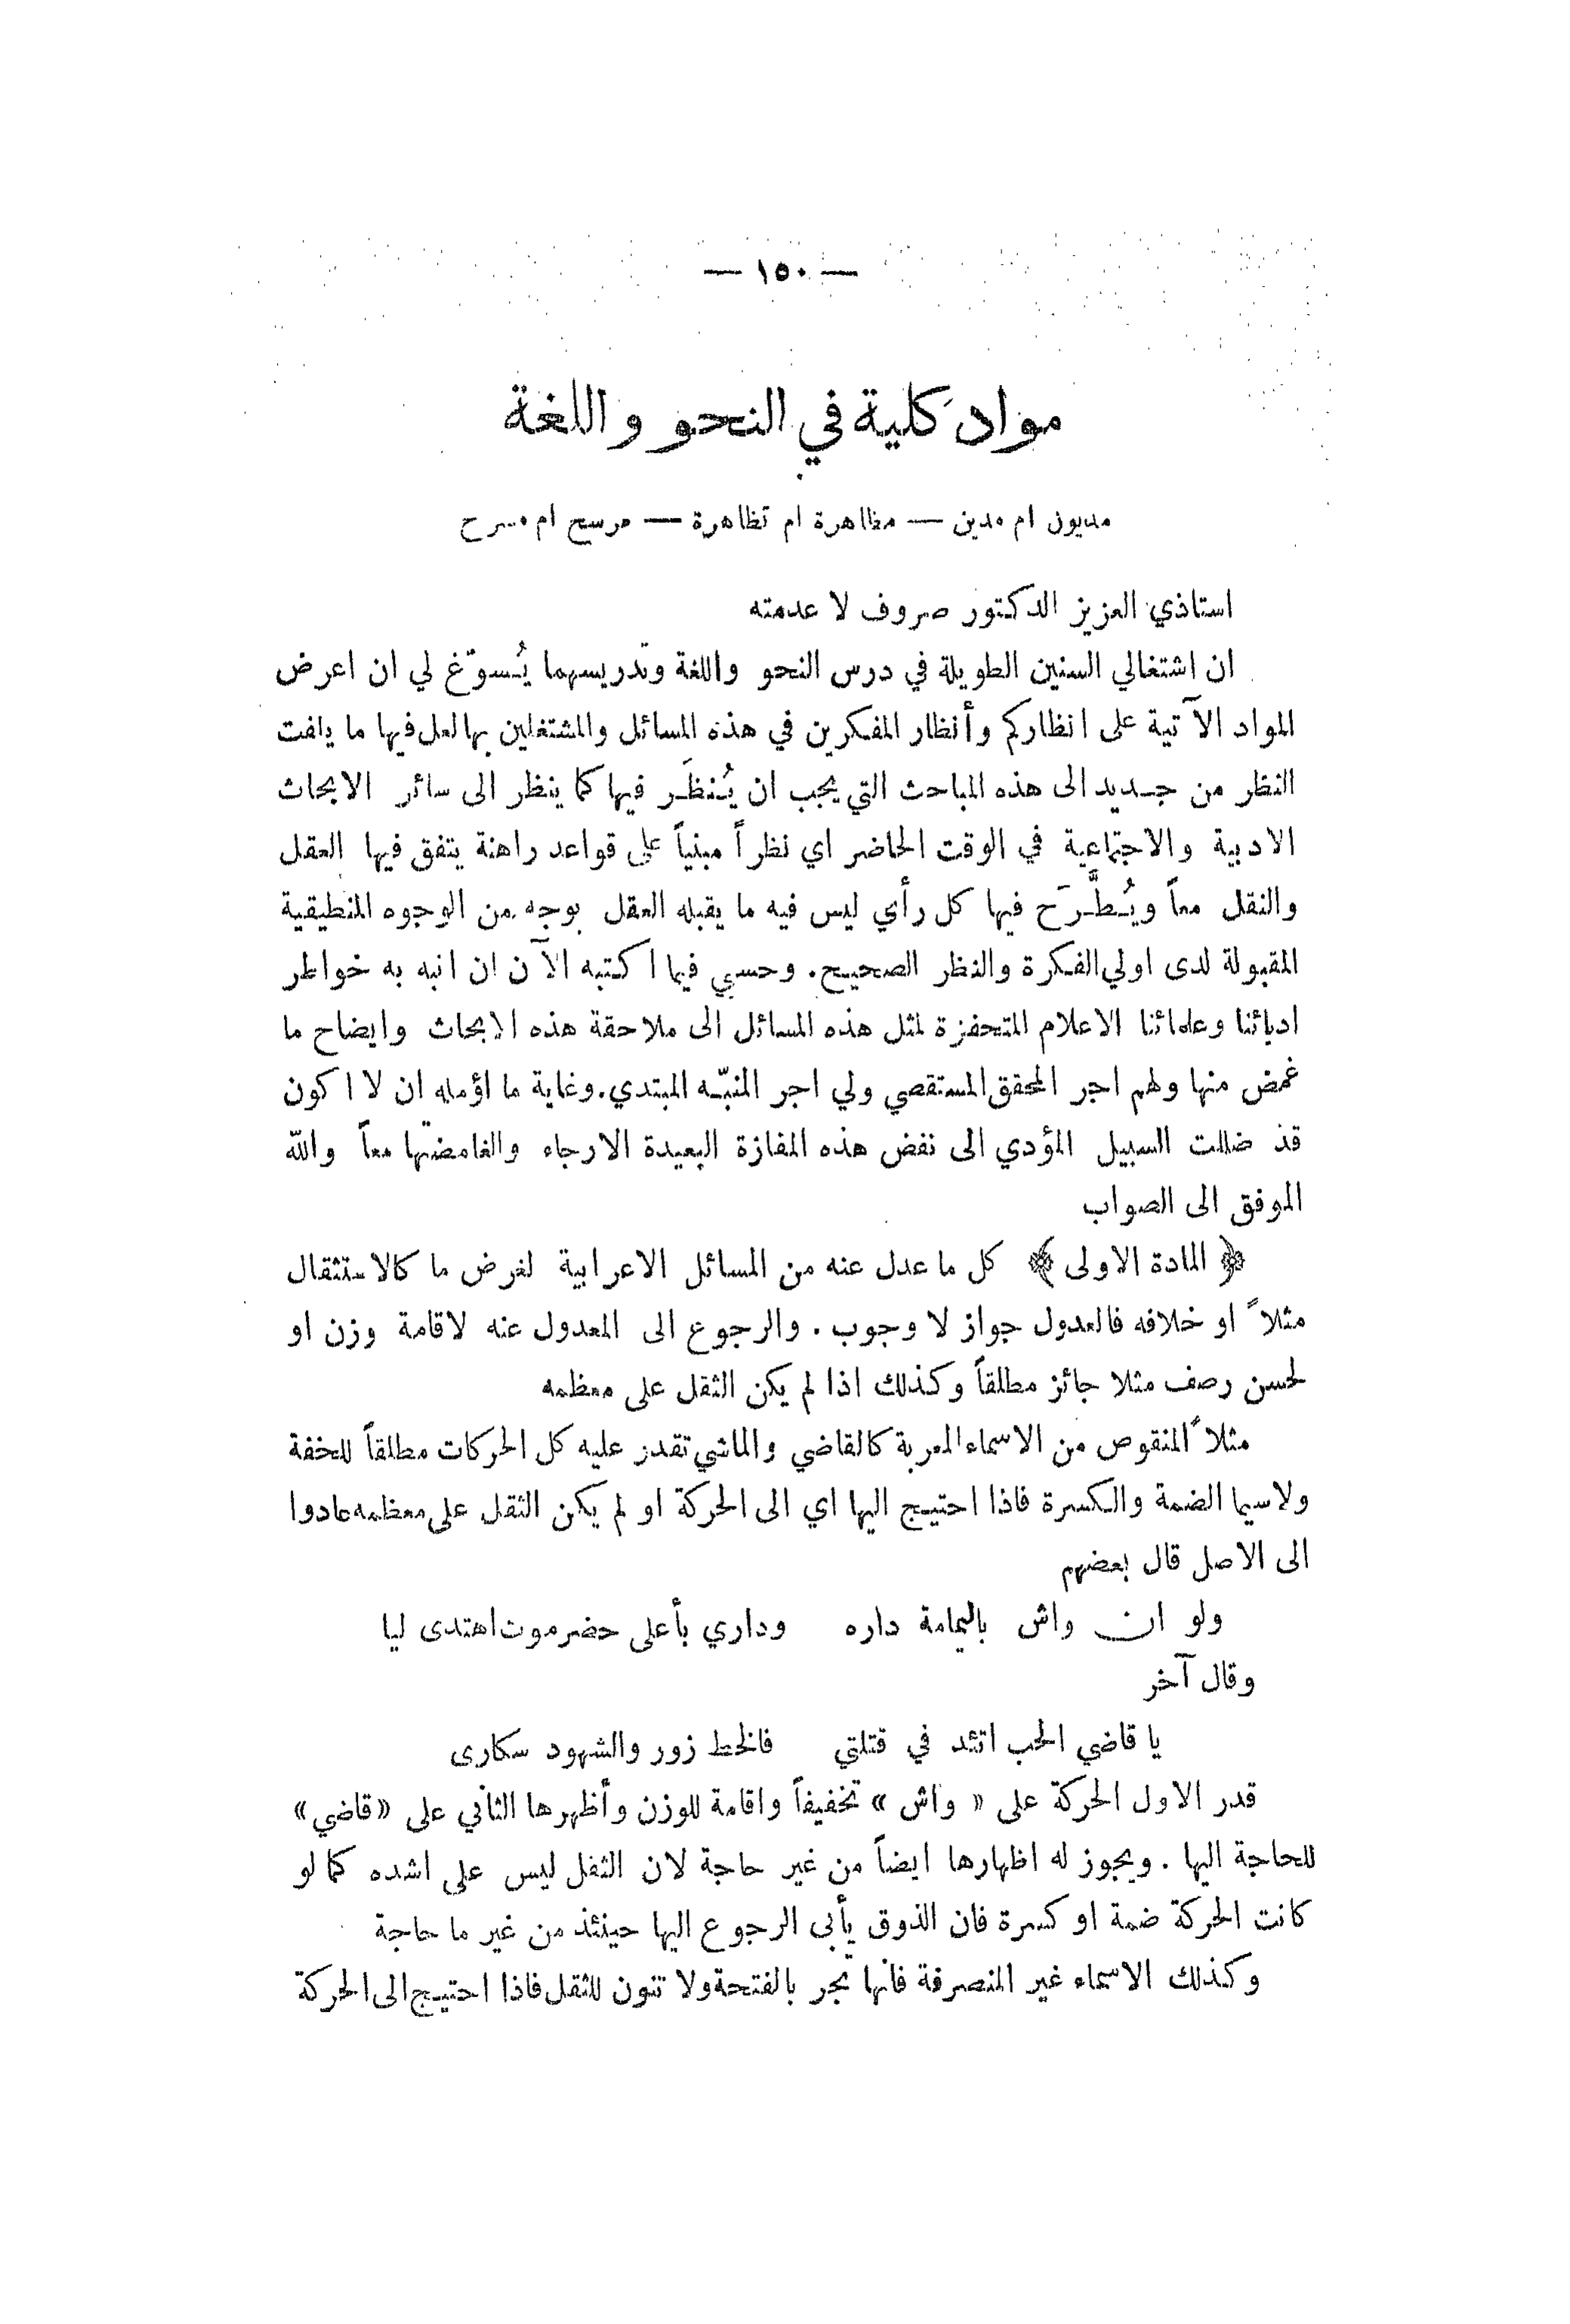 — ١٥٠ —
مواد كلية في النحو واللغة
مديون ام مدين — مظاهرة ام تظاهرة — مرسح ام مسرح
استاذي العزيز الدكتور صروف لا عدمته
ان اشتغالي السنين الطويلة في درس النحو واللغة وتدريسهما يُسوّغ لي ان اعرض
المواد الآتية على انظاركم وأنظار المفكرين في هذه المسائل والمشتغلين بها لعل فيها ما يلفت
النظر من جديد الى هذه المباحث التي يجب ان يُنظَر فيها كما ينظر الى سائر الابحاث
الادبية والاجتماعية في الوقت الحاضر اي نظراً مبنياً على قواعد راهنة يتفق فيها العقل
والنقل معاً ويُطَّرَح فيها كل رأي ليس فيه ما يقبله العقل بوجه من الوجوه المنطيقية
المقبولة لدى اولي الفكرة والنظر الصحيح. وحسبي فيما اكتبه الآن ان انبه به خواطر
ادبائنا وعلمائنا الاعلام المتحفزة لمثل هذه المسائل الى ملاحقة هذه الابحاث وايضاح ما
غمض منها ولهم اجر المحقق المستقصي ولي اجر المنبّه المبتدي. وغاية ما اؤمله ان لا اكون
قد ضللت السبيل المؤدي الى نفض هذه المفازة البعيدة الارجاء والغامضتها معاً والله
الموفق الى الصواب
﴿ المادة الاولى ﴾ كل ما عدل عنه من المسائل الاعرابية لغرض ما كالاستثقال
مثلاً او خلافه فالعدول جواز لا وجوب. والرجوع الى المعدول عنه لاقامة وزن او
لحسن رصف مثلا جائز مطلقاً وكذلك اذا لم يكن الثقل على معظمه
مثلاً المنقوص من الاسماء المعربة كالقاضي والماشي تقدر عليه كل الحركات مطلقاً للخفة
ولاسيما الضمة والكسرة فاذا احتيج اليها اي الى الحركة او لم يكن الثقل على معظمه عادوا
الى الاصل قال بعضهم
ولو ان واش باليمامة داره وداري بأعلى حضرموت اهتدى ليا
وقال آخر
يا قاضي الحب اتئد في قتلتي فالخط زور والشهود سكارى
قدر الاول الحركة على « واش » تخفيفاً واقامة للوزن وأظهرها الثاني على «قاضي»
للحاجة اليها. ويجوز له اظهارها ايضاً من غير حاجة لان الثقل ليس على اشده كما لو
كانت الحركة ضمة او كسرة فان الذوق يأبى الرجوع اليها حينئذ من غير ما حاجة
وكذلك الاسماء غير المنصرفة فانها تجر بالفتحة ولا تنون للثقل فاذا احتيج الى الحركة